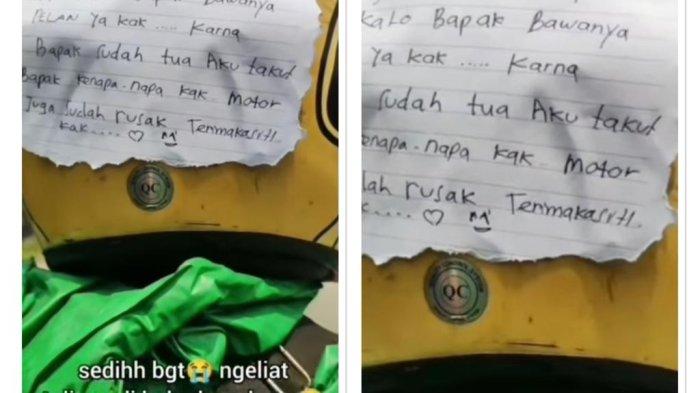 Bapak Bawanya
PELAN Ya kak .... Karna
Bapak sudah tua Aku takut
Bapak kenapa-napa kak motor
Juga sudah rusak Tenmakasih.
kak.....
QC
sedihh bgt😭 ngeliat
kalo Bapak Bawanya
Ya kak ..... Karna
sudah tua Aku takut
enapa-napa kak motor
lah rusak Tenmakasih.
QC